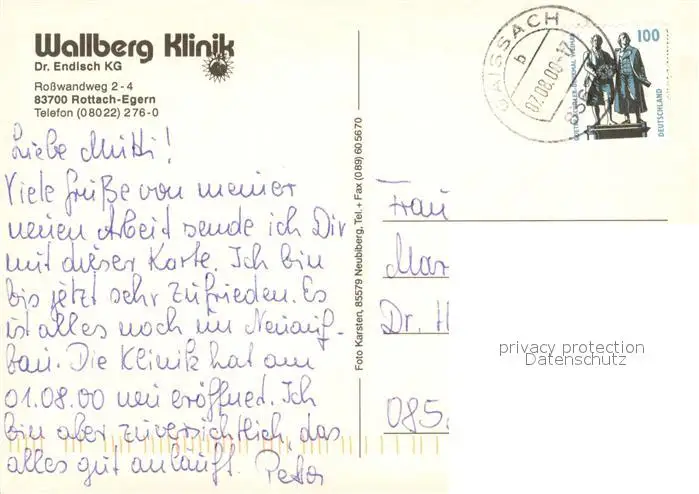 Wallberg Klinik
Dr. Endisch KG
Roßwandweg 2-4
83700 Rottach-Egern
Telefon (08022) 276-0
Liebe Mutti!
Viele Grüße von meiner
neuen Arbeit sende ich Dir
mit dieser Karte. Ich bin
bis jetzt sehr zufrieden. Es
ist alles noch im Neuauf-
bau. Die Klinik hat am
01.08.00 neu eröffned. Ich
bin aber zuversichtlich, das
alles gut anläuft. Peter
Foto Karsten, 85579 Neubiberg, Tel.+ Fax (089) 605670
GAISSACH
b
07.08.00-17
100
DEUTSCHLAND
Frau
Mar
Dr. H
085
privacy protection
Datenschutz